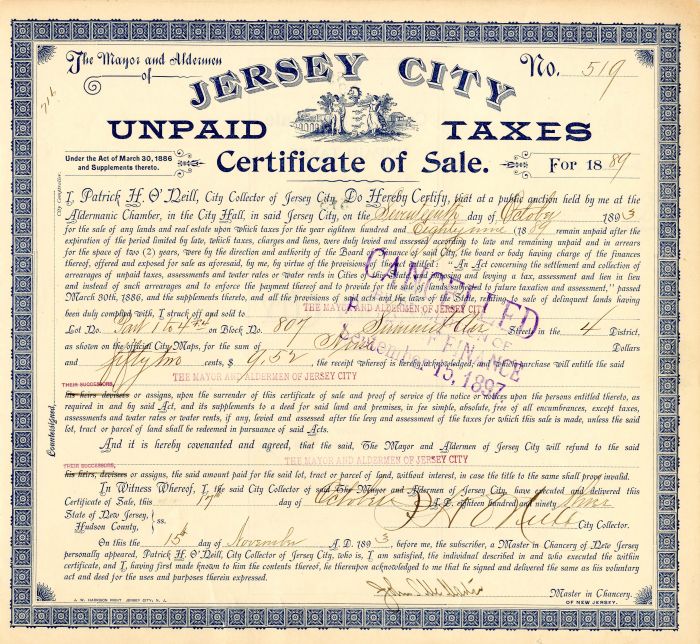 The Mayor and Aldermen
of
JERSEY CITY
No. 519
716
UNPAID TAXES
Under the Act of March 30, 1886
and Supplements thereto.
Certificate of Sale.
For 1889
City Comptroller.
Countersigned,
I, Patrick H. O'Neill, City Collector of Jersey City, Do Hereby Certify, that at a public auction held by me at the
Aldermanic Chamber, in the City Hall, in said Jersey City, on the Seventeenth day of October 1893
for the sale of all lands and real estate upon which taxes for the year eighteen hundred and Eighty nine (1889 remain unpaid after the
expiration of the period limited by law, which taxes, charges and liens, were duly levied and assessed according to law and remaining unpaid and in arrears
for the space of two (2) years, were by the direction and authority of the Board of Finance of said City, the board or body having charge of the finances
thereof, offered and exposed for sale as aforesaid, by me, by virtue of the provisions of the act entitled: "An Act concerning the settlement and collection of
arrearages of unpaid taxes, assessments and water rates or water rents in Cities of this State, and imposing and levying a tax, assessment and lien in lieu
and instead of such arrearages and to enforce the payment thereof and to provide for the sale of lands subjected to future taxation and assessment," passed
March 30th, 1886, and the supplements thereto, and all the provisions of said acts and the laws of the State relating to sale of delinquent lands having
been duly complied with, I struck off and sold to THE MAYOR AND ALDERMEN OF JERSEY CITY
Lot No. Part 1 to 4 on Block No. 807 Summit Ave Street, in the 4 District,
as shown on the official City Maps, for the sum of Nine Dollars
and fifty two cents, $ 9.52, the receipt whereof is hereby acknowledged; and this purchase will entitle the said
THE MAYOR AND ALDERMEN OF JERSEY CITY
THEIR SUCCESSORS,
his heirs, devisees or assigns, upon the surrender of this certificate of sale and proof of service of the notice or notices upon the persons entitled thereto, as
required in and by said Act, and its supplements to a deed for said land and premises, in fee simple, absolute, free of all encumbrances, except taxes,
assessments and water rates or water rents, if any, levied and assessed after the levy and assessment of the taxes for which this sale is made, unless the said
lot, tract or parcel of land shall be redeemed in pursuance of said Acts.
And it is hereby covenanted and agreed, that the said, The Mayor and Aldermen of Jersey City will refund to the said
THE MAYOR AND ALDERMEN OF JERSEY CITY
THEIR SUCCESSORS,
his heirs, devisees or assigns, the said amount paid for the said lot, tract or parcel of land, without interest, in case the title to the same shall prove invalid.
In Witness Whereof, I, the said City Collector of said The Mayor and Aldermen of Jersey City, have executed and delivered this
Certificate of Sale, this 17th day of October A. D. eighteen hundred and ninety three
P. H. O'Neill
City Collector.
State of New Jersey,
Hudson County, ss.
On this the 15th day of November A. D. 1893, before me, the subscriber, a Master in Chancery of New Jersey
personally appeared, Patrick H. O'Neill, City Collector of Jersey City, who is, I am satisfied, the individual described in and who executed the within
certificate, and I, having first made known to him the contents thereof, he thereupon acknowledged to me that he signed and delivered the same as his voluntary
act and deed for the uses and purposes therein expressed.
Master in Chancery
OF NEW JERSEY.
J. W. HARRISON PRINT JERSEY CITY, N. J.
CANCELLED
OF
FINANCE
September 15, 1897